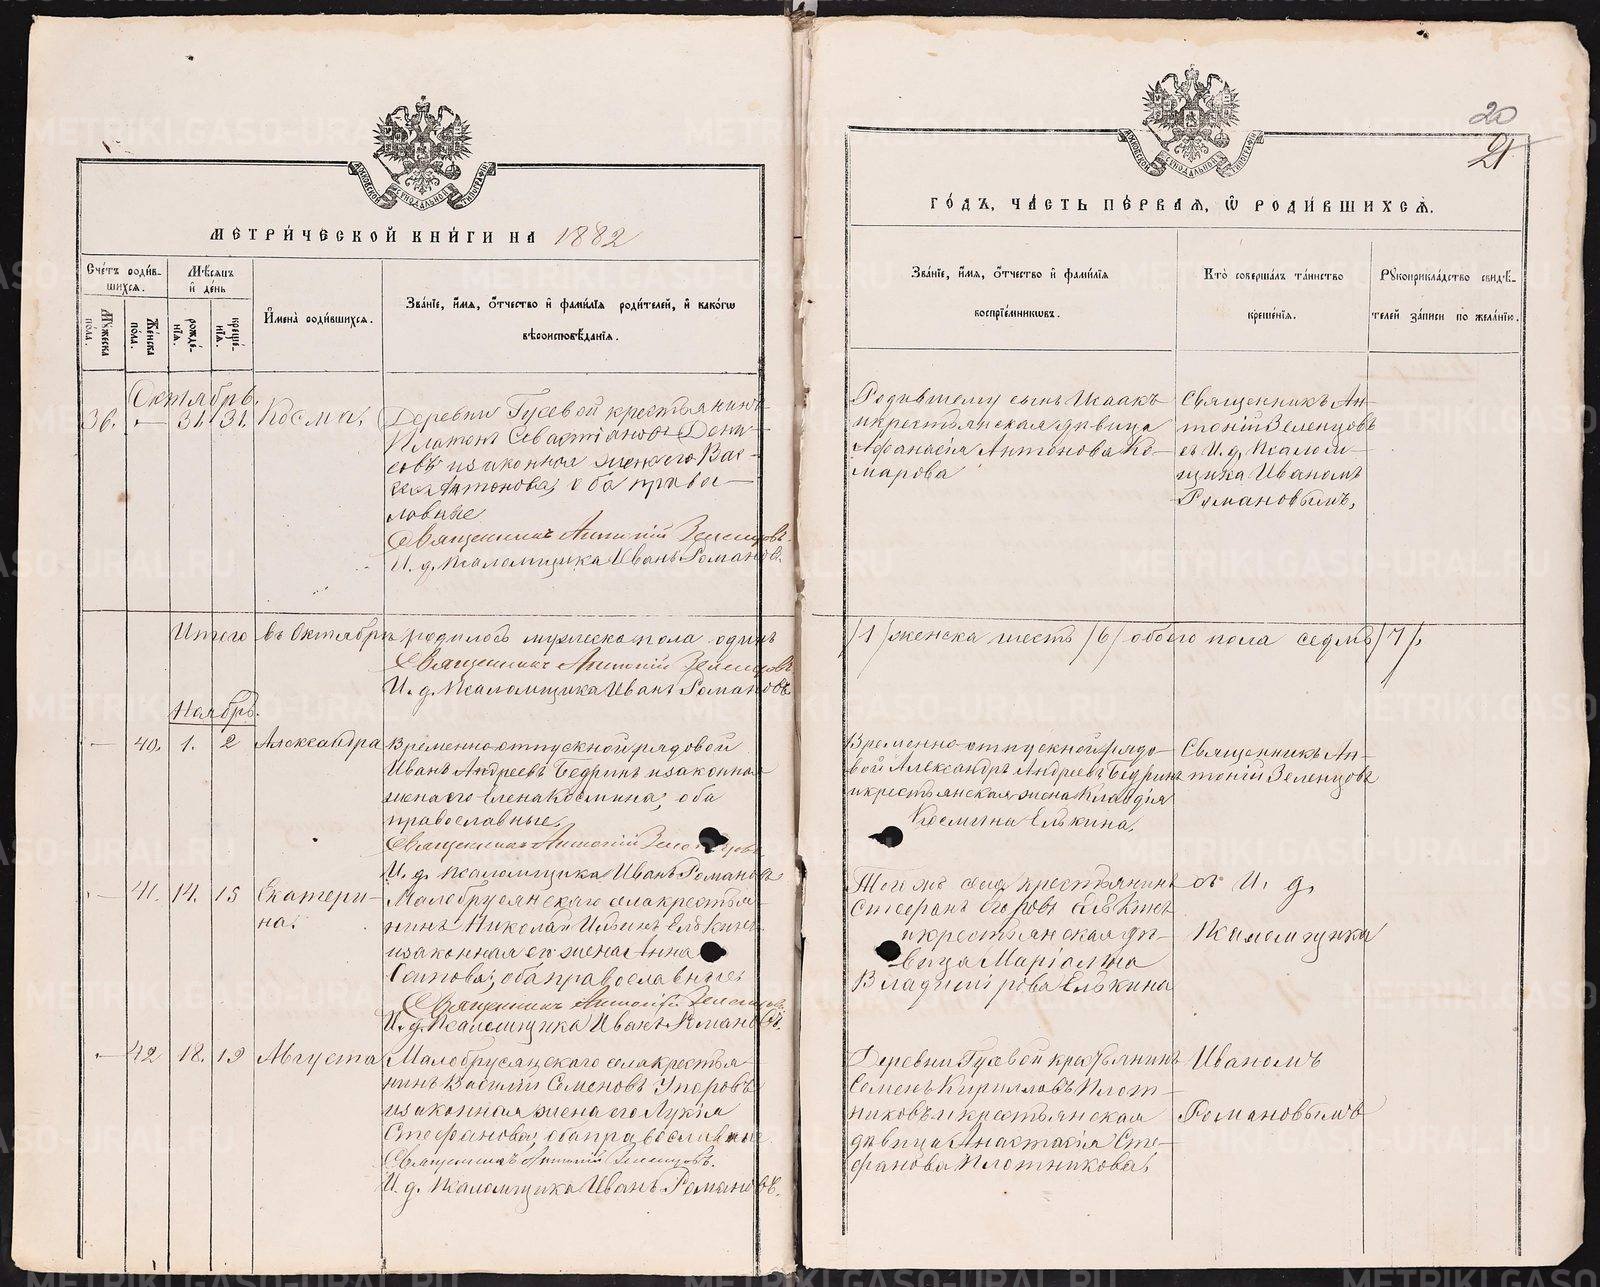 МЕТРИ́ЧЕСКОЙ КНИ́ГИ НА 1882
Сче́тъ роди́в-
шихся.
Мѣ́сяцъ
и҆ де́нь
Мꙋ́жеска
по́ла.
Же́нска
по́ла.
рожде́-
нїѧ.
креще́-
нїѧ.
И҆мена̀ роди́вшихсѧ.
Зва́нїе, и҆́мѧ, ѻ҆́тчество и҆ фами́лїѧ роди́телей, и҆ како́гѡ
вѣроисповѣ́данїѧ.
Октябрь.
36. — 31. 31. Косма,
Деревни Гусевой крестьянинъ
Платонъ Севастіановъ Дени-
совъ и законная жена его Вас-
са Антонова; оба правос-
лавные
Священникъ Антоній Зеленцовъ.
И. д. псаломщика Иванъ Романовъ.
Итого въ Октябрѣ родилось мужеска пола одинъ
Священникъ Антоній Зеленцовъ
И. д. Псаломщика Иванъ Романовъ
Ноябрь.
— 40. 1. 2 Александра
Временно-отпускной рядовой
Иванъ Андреевъ Бедринъ и законная
жена его Елена Космина; оба
православные,
Священникъ Антоній Зеленцовъ
И. д. псаломщика Иванъ Романовъ
— 41. 14. 15 Екатери-
на.
Малобрусянскаго села крестья-
нинъ Николай Ильинъ Елькинъ
и законная его жена Анна
Осипова; оба православные
Священникъ Антоній Зеленцовъ
И. д. Псаломщика Иванъ Романовъ.
— 42 18. 19 Августа
Малобрусянскаго села крестья-
нинъ Василій Семеновъ Упоровъ
и законная жена его Лукія
Стефанова; оба православные
Священникъ Антоній Зеленцовъ.
И. д. Псаломщика Иванъ Романовъ.
20
21
ГО́ДЪ, ЧА́СТЬ ПЕ́РВАѦ, Ѽ РОДИ́ВШИХСѦ.
Зва́нїе, и҆́мѧ, ѻ҆́тчество и҆ фами́лїѧ
воспрїе́мникѡвъ.
Кто̀ соверша́лъ та́инство
креще́нїѧ.
Рꙋкоприкла́дство свидѣ́-
телей за́писи по жела́нїю.
Родившему сынъ Исаакъ
и крестьянская дѣвица
Афанасія Антонова Ко-
марова
Священникъ Ан-
тоній Зеленцовъ
съ И. д. Псалом-
щика Иваномъ
Романовымъ,
/1/ женска шесть /6/ обоего пола седмь /7/.
Временно-отпускной рядо-
вой Александръ Андреевъ Бедринъ
и крестьянская жена Клавдія
Космина Елькина,
Священникъ Ан-
тоній Зеленцовъ
Того же села крестьянинъ
Стефанъ Егоровъ Елькинъ
и крестьянская дѣ-
вица Маріамна
Владимірова Елькина
съ И. д.
Псаломщика
Деревни Гусевой крестьянинъ
Семенъ Кирилловъ Плот-
никовъ и крестьянская
дѣвица Анастасія Сте-
фанова Плотникова,
Иваномъ
Романовымъ